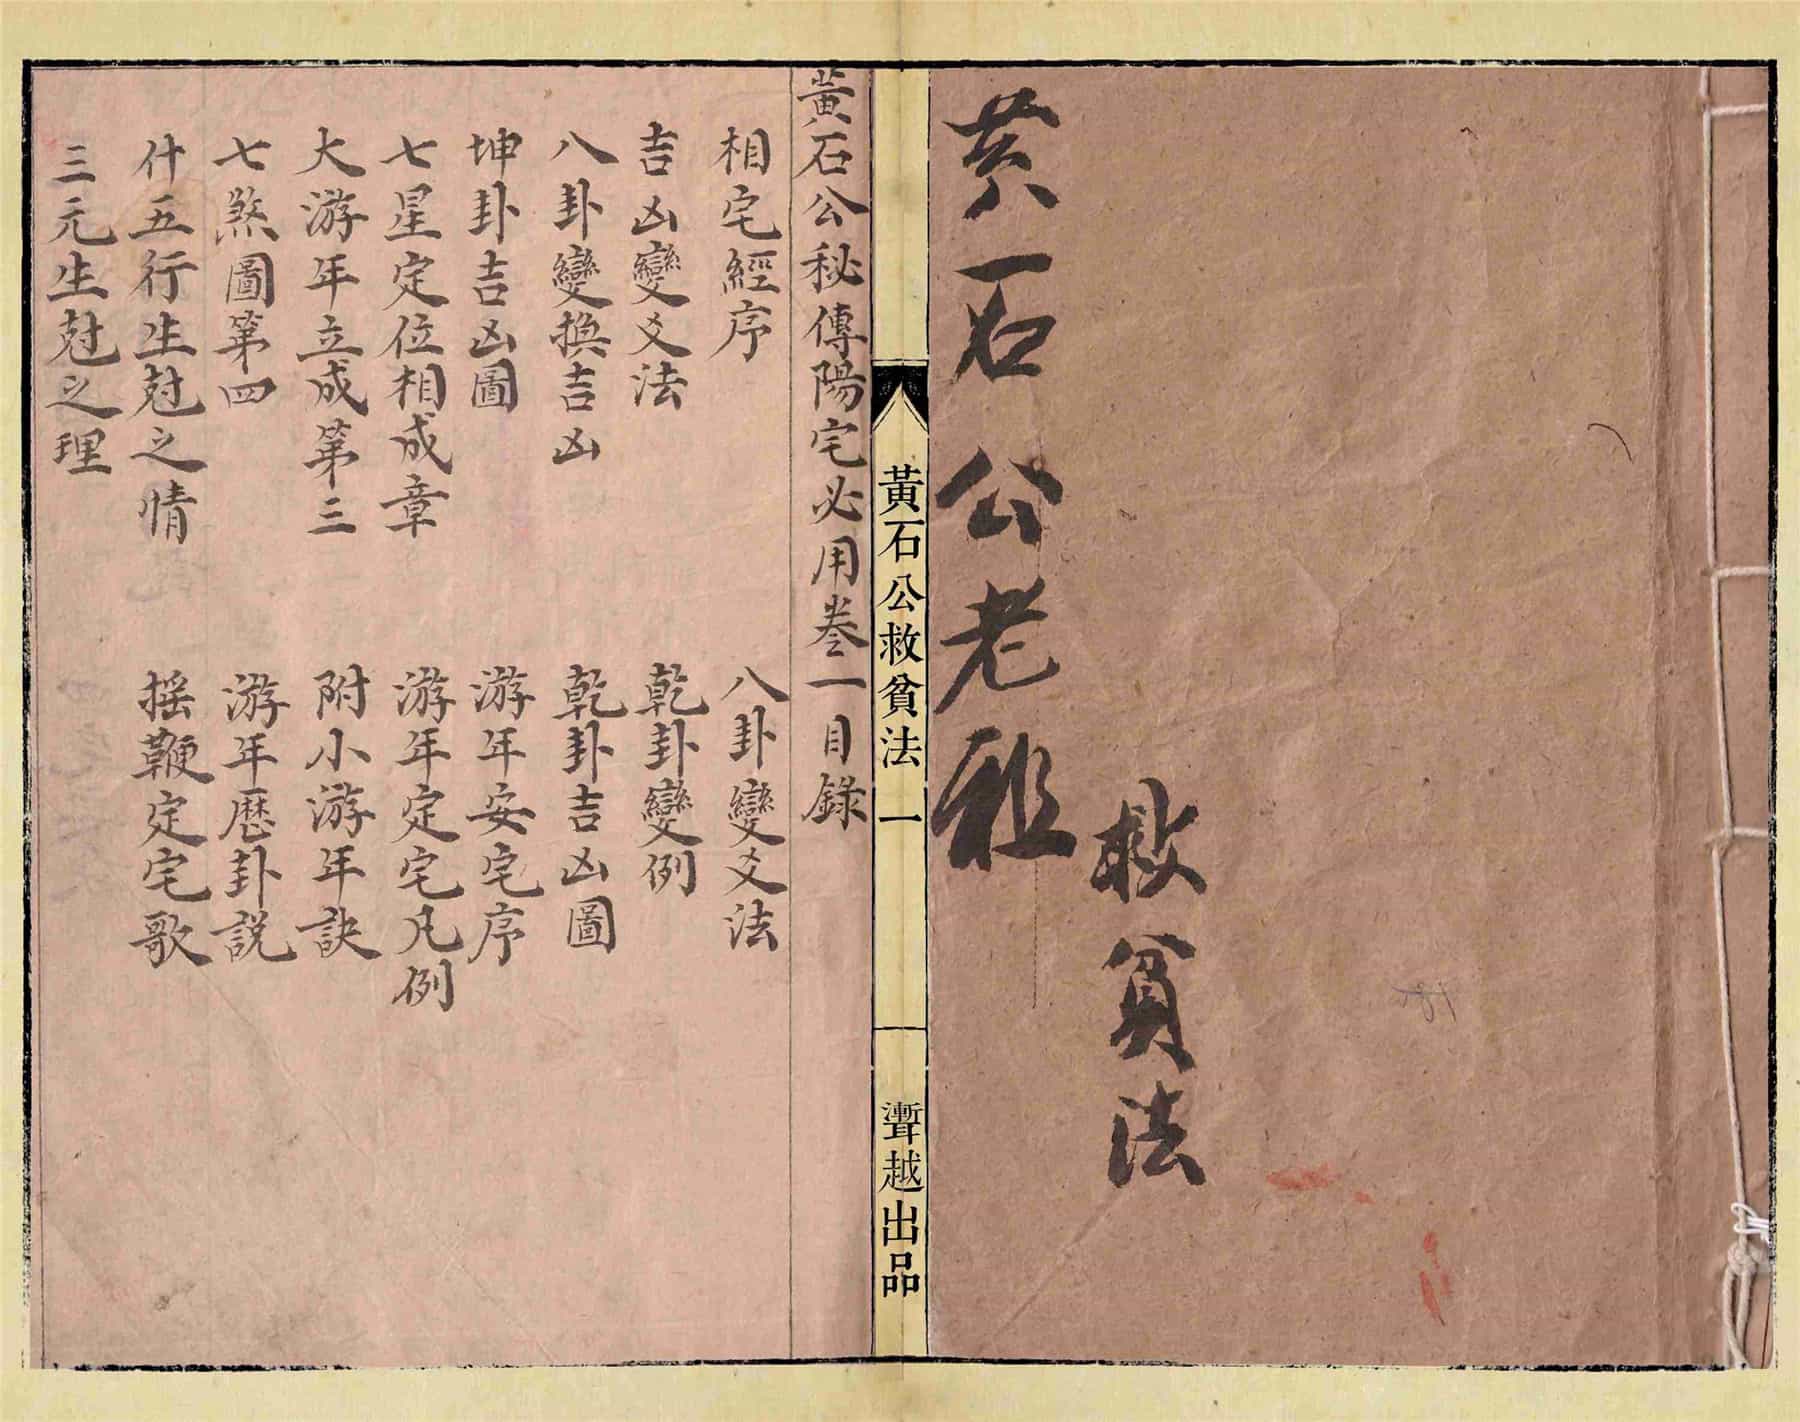 黄石公老祖
救貧法
黃石公救貧法 一
聻越出品
黃石公秘傳陽宅必用卷一目錄
相宅經序 八卦變爻法
吉凶變爻法 乾卦變例
八卦變換吉凶 乾卦吉凶圖
坤卦吉凶圖 游年安宅序
七星定位相成章 游年定宅凡例
大游年立成第三 附小游年訣
七煞圖第四 游年曆卦説
什五行生尅之情 摇鞭定宅歌
三元生尅之理